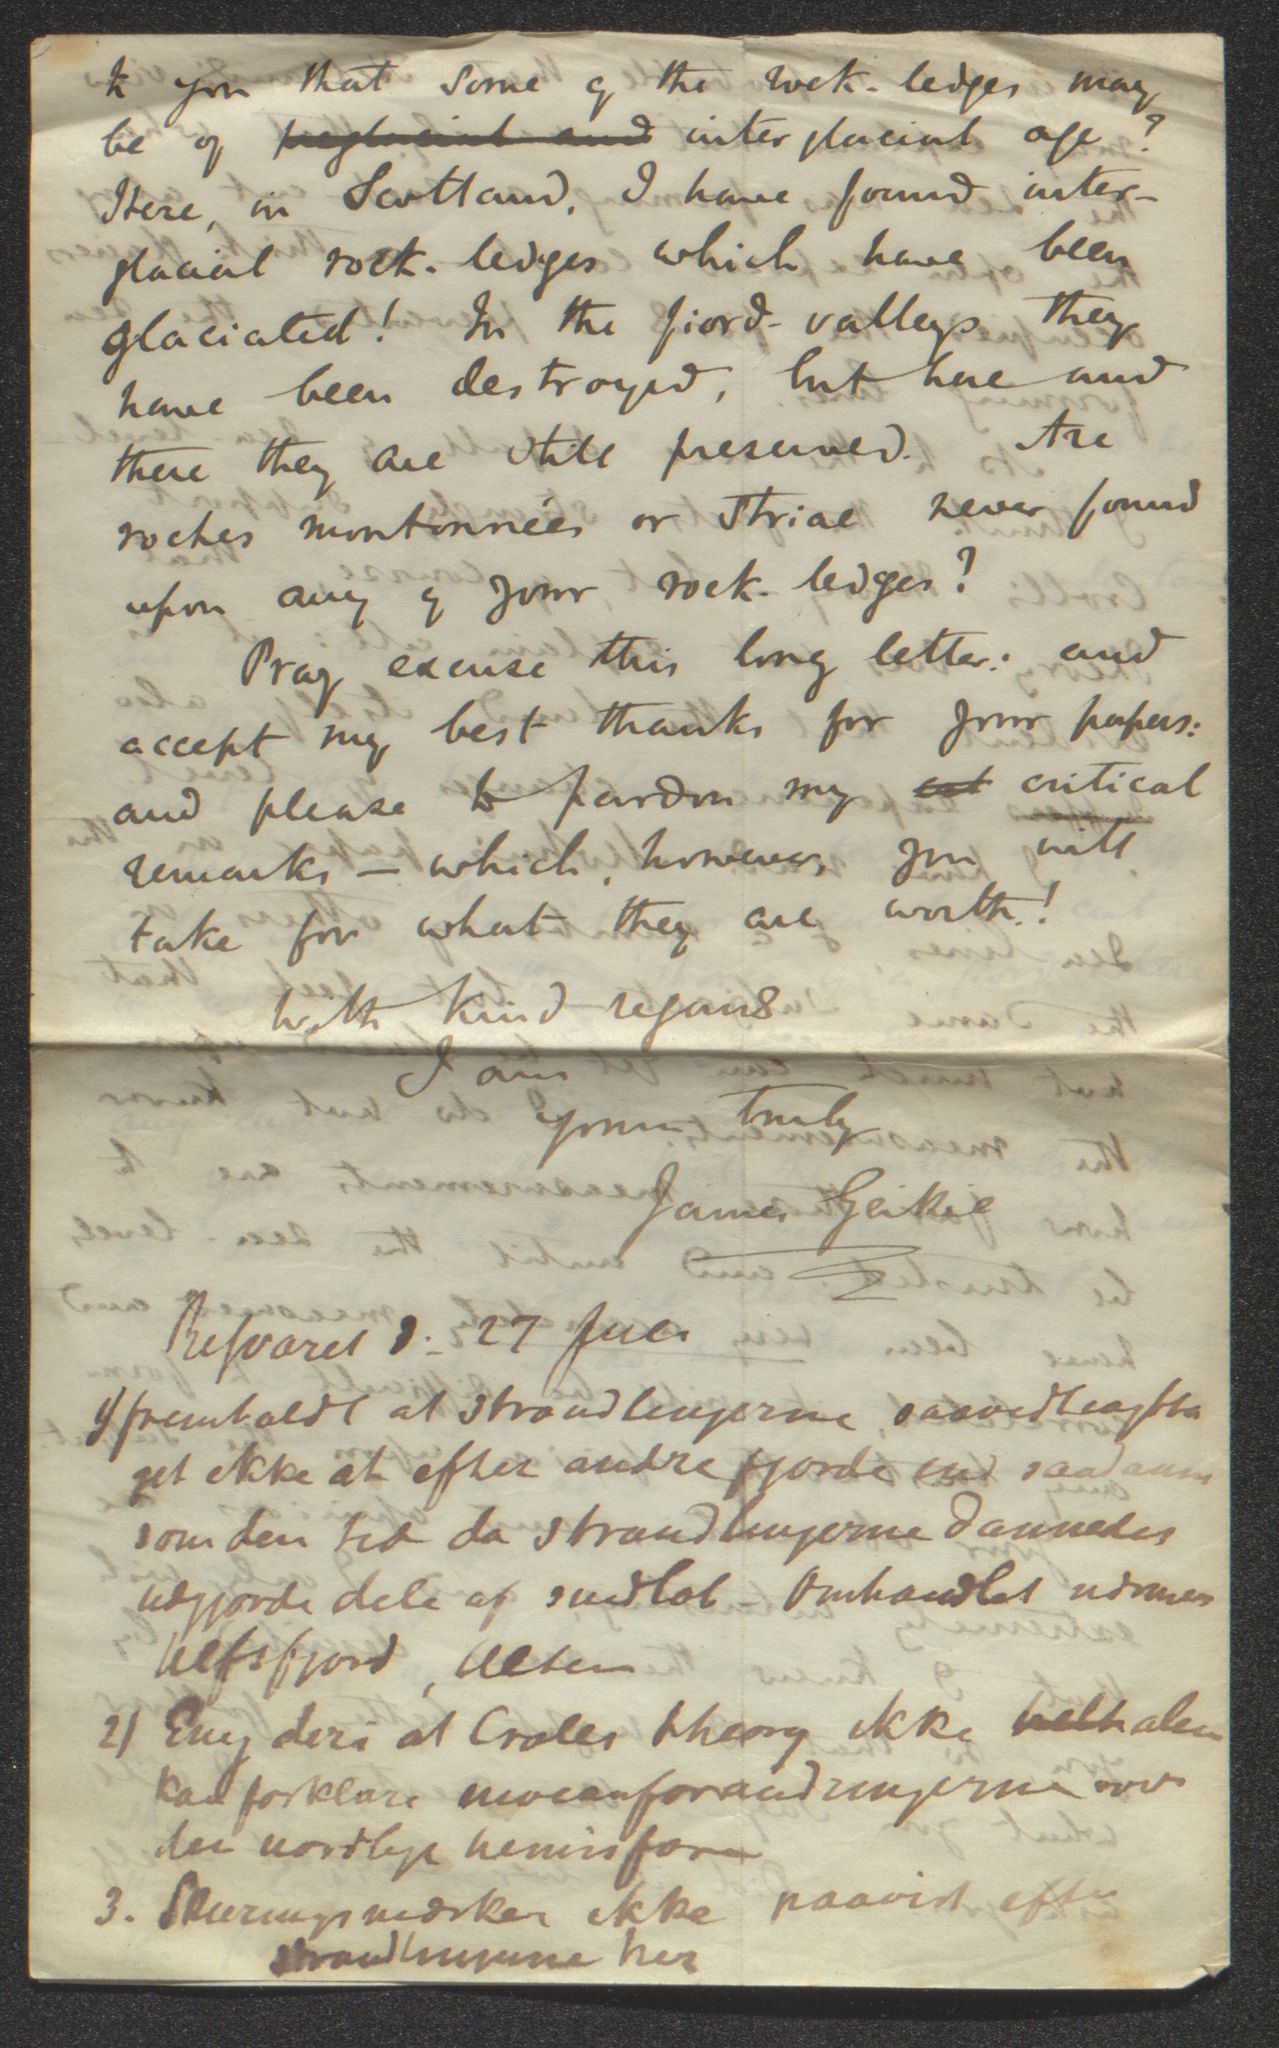 to you that some of the rock-ledges may
be of preglacial and interglacial age?
Here, in Scotland, I have found inter-
glacial rock-ledges which have been
glaciated! In the fiord-valleys they
have been destroyed, but here and
there they are still preserved. Are
roches montonnées or striae never found
upon any of your rock-ledges?
Pray excuse this long letter: and
accept my best thanks for your papers:
and please to pardon my critical
remarks — which, however, you will
take for what they are worth!
With kind regards
I am
Yours truly
James Geikie
Besvaret d. 27 Juli
1) fremholdt at strandlinjerne
ikke at efter andre fjorde end saadanne
som den tid da strandlinjerne dannedes
udgjorde dele af - Omhandlet nærmere
Ulfsfjord, Alten
2) Enig deri at Crolls theory ikke helt alene
kan forklare niveauforandringerne over
den nordlige hemisfære
3. Skuringsmærker ikke paavist efter
strandlinjerne her